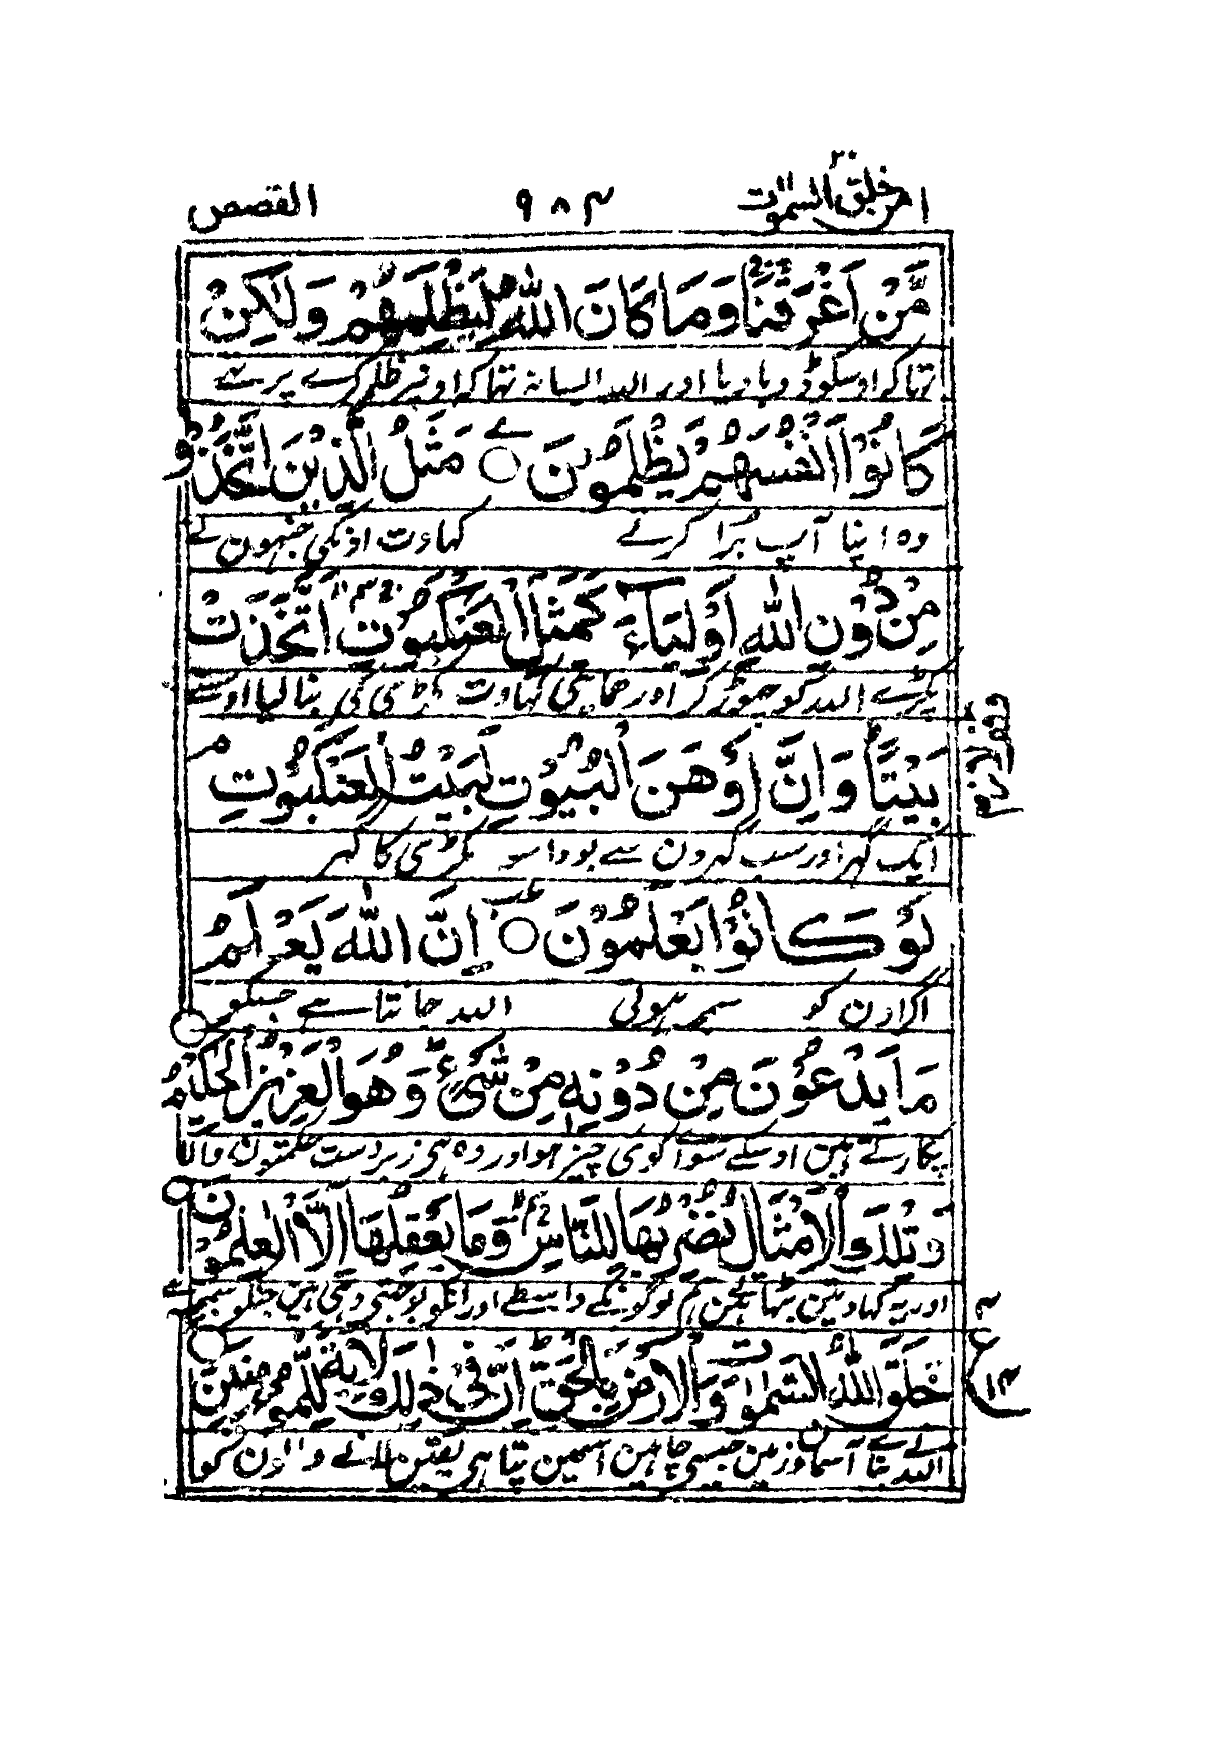 امن خلق السموت ٢٠ ٩٨٣ القصص
مَّنْ اَغْرَقْنَا وَمَا كَانَ اللّٰهُ لِيَظْلِمَهُمْ وَلٰكِنْ
تہا کہ اوسکو ڈوبا دیا اور اللہ ایسا نہ تہا کہ اونپر ظلم کرے پر تہے
كَانُوْٓا اَنْفُسَهُمْ يَظْلِمُوْنَ ○ مَثَلُ الَّذِيْنَ اتَّخَذُوْا
وہ اپنا آپ بُرا کرتے کہاوت اونکی جنہون نے
مِنْ دُوْنِ اللّٰهِ اَوْلِيَآءَ كَمَثَلِ الْعَنْكَبُوْتِ اِتَّخَذَتْ
پکڑے اللہ کو چھوڑ کر اور حمایتی کہاوت مکڑی کی بنا لیا اوسنے
بَيْتًا وَاِنَّ اَوْهَنَ الْبُيُوْتِ لَبَيْتُ الْعَنْكَبُوْتِ م
وقف لازم
ایک گہر اور سب گہرون سے بودا سو مکڑی کا گہر
لَوْ كَانُوْا يَعْلَمُوْنَ ○ اِنَّ اللّٰهَ يَعْلَمُ
اگر اون کو سمجہ ہوتی اللہ جانتا ہے جسکو
مَا يَدْعُوْنَ مِنْ دُوْنِهٖ مِنْ شَىْءٍ ط وَهُوَ الْعَزِيْزُ الْحَكِيْمُ ○
پکارتے ہین اوسکے سوا کوئی چیز ہو اور وہ ہی زبردست حکمتون والا
وَتِلْكَ الْاَمْثَالُ نَضْرِبُهَا لِلنَّاسِ وَمَا يَعْقِلُهَآ اِلَّا الْعٰلِمُوْنَ ○
اور یہ کہاوتین بٹہاتے ہین ہم لوگونکے واسطے اور انکو بوجہتے وہی ہین جنکو سمجہ ہے
خَلَقَ اللّٰهُ السَّمٰوٰتِ وَالْاَرْضَ بِالْحَقِّ ط اِنَّ فِىْ ذٰلِكَ لَاٰيَةً لِّلْمُؤْمِنِيْنَ ○
ع
اللہ نے بنائے آسمان و زمین جیسی چاہین اسمین پتا ہی یقین لانے والون کو